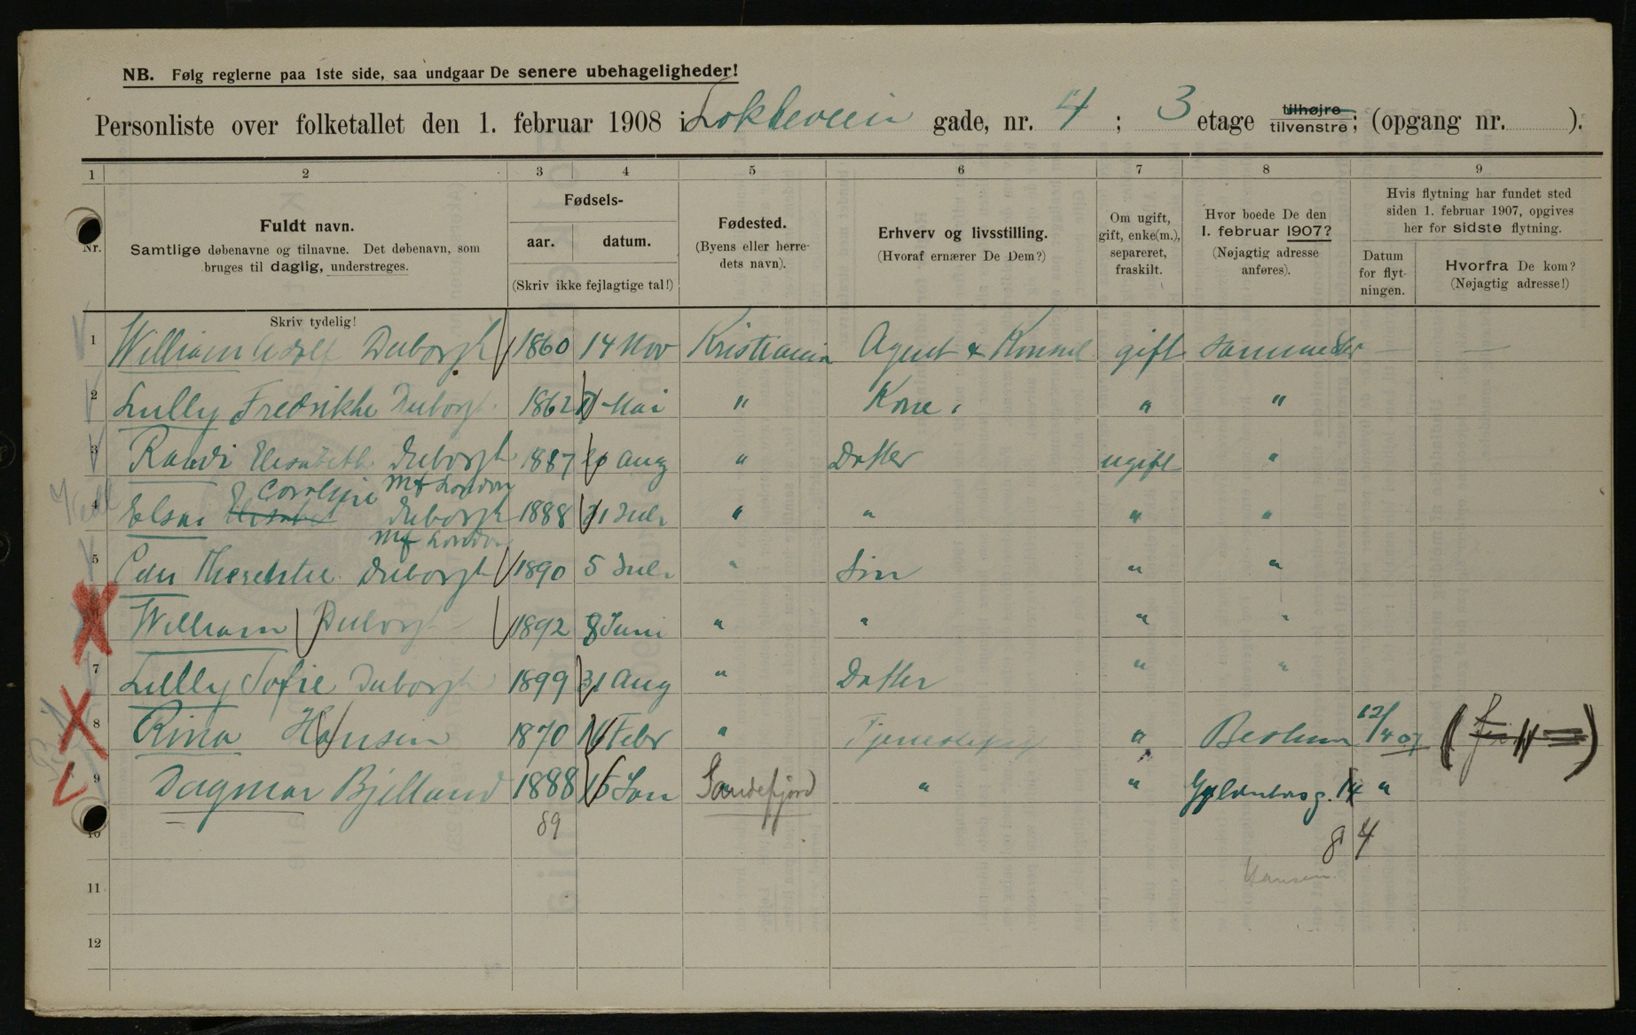 NB. Følg reglerne paa 1ste side, saa undgaar De senere ubehageligheder!
Personliste over folketallet den 1. februar 1908 i Løkkeveien gade, nr. 4 ; 3 etage tilhøjre tilvenstre; (opgang nr. ).
1 2 3 4 5 6 7 8 9
Nr. Fuldt navn. Samtlige døbenavne og tilnavne. Det døbenavn, som bruges til daglig, understreges.
Fødsels-
aar. datum.
(Skriv ikke fejlagtige tal!)
Fødested. (Byens eller herredets navn).
Erhverv og livsstilling. (Hvoraf ernærer De Dem?)
Om ugift, gift, enke(m.), separeret, fraskilt.
Hvor boede De den 1. februar 1907? (Nøjagtig adresse anføres).
Hvis flytning har fundet sted siden 1. februar 1907, opgives her for sidste flytning.
Datum for flytningen.
Hvorfra De kom? (Nøjagtig adresse!)
Skriv tydelig!
1 William Adolf Duborgh 1860 14 Nov Kristiania Agent & Konsul gift samme —  —
2 Lully Fredrikke Duborgh 1862 Mai " Kone " "
3 Randi Elisabeth Duborgh 1887 Aug " Datter ugift "
Mf London
4 Elsa Caroline Duborgh 1888 Juli " " " "
Mf London
5 Duborgh 1890 5 Juli " Søn " "
William Duborgh 1892 8 Juni " " " "
7 Lully Sofie Duborgh 1899 31 Aug " Datter " "
8 Rina Hansen 1870 Febr " Tjenestepige " Bestum 12/4 07
9 Dagmar Bjelland 1888 15 Jan Sandefjord " " Gyldenløvsg. 14 "
10 89 8 4
Hansen
11
12